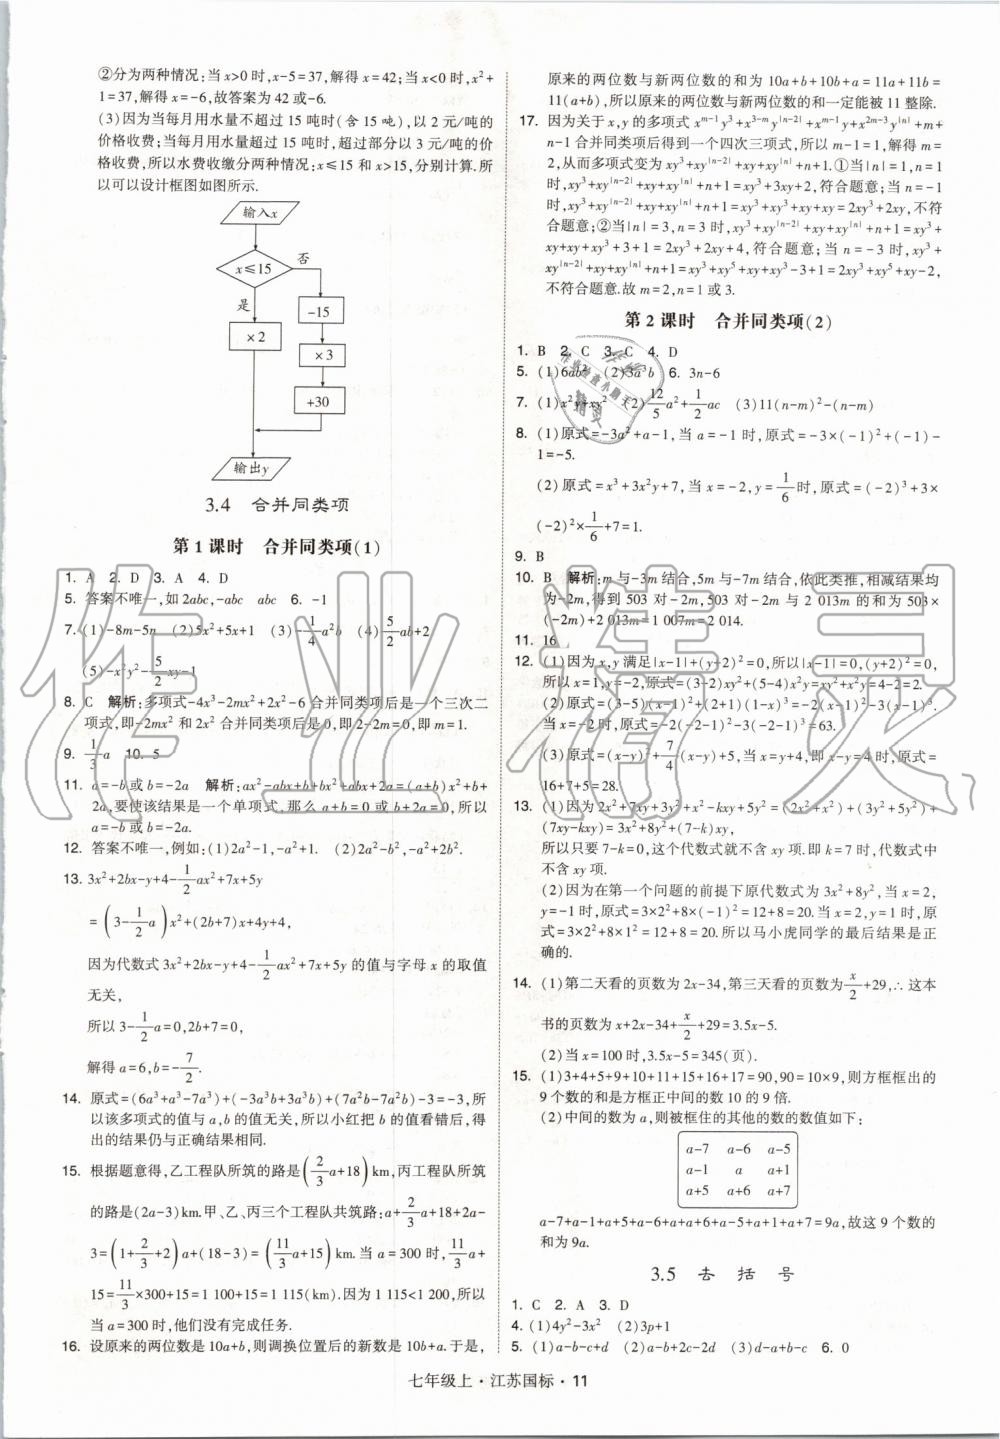 ②分为两种情况:当 x>0 时,x-5=37,解得 x=42;当 x<0 时,x²+
1=37,解得 x=-6,故答案为 42 或-6.
(3)因为当每月用水量不超过 15 吨时(含 15 吨),以 2 元/吨的
价格收费;当每月用水量超过 15 吨时,超过部分以 3 元/吨的
价格收费,所以水费收缴分两种情况:x≤15 和 x>15,分别计算.所
以可以设计框图如图所示.
输入x
x≤15
否
是
-15
×2
×3
+30
输出y
3.4 合并同类项
第 1 课时 合并同类项(1)
1. A 2. D 3. A 4. D
5. 答案不唯一,如 2abc,-abc abc 6. -1
7. (1)-8m-5n (2)5x²+5x+1 (3)-1/4 a²b (4)5/2 ab+2
(5)-x²y²-5/2 xy-1
8. C 解析:多项式-4x³-2mx²+2x²-6 合并同类项后是一个三次二
项式,即-2mx² 和 2x² 合并同类项后是 0,即 2-2m=0,即 m=1.
9. 1/3 a 10. 5
11. a=-b 或 b=-2a 解析:ax²-abx+b+bx²+abx+2a=(a+b)x²+b+
2a,要使该结果是一个单项式,那么 a+b=0 或 b+2a=0,所以
a=-b 或 b=-2a.
12. 答案不唯一,例如:(1)2a²-1,-a²+1. (2)2a²-b²,-a²+2b².
13. 3x²+2bx-y+4-1/2 ax²+7x+5y
=(3-1/2 a)x²+(2b+7)x+4y+4,
因为代数式 3x²+2bx-y+4-1/2 ax²+7x+5y 的值与字母 x 的取值
无关,
所以 3-1/2 a=0,2b+7=0,
解得 a=6,b=-7/2.
14. 原式=(6a³+a³-7a³)+(-3a³b+3a³b)+(7a²b-7a²b)-3=-3,所
以该多项式的值与 a,b 的值无关,所以小红把 b 的值看错后,得
出的结果仍与正确结果相同.
15. 根据题意得,乙工程队所筑的路是(2/3 a+18)km,丙工程队所筑
的路是(2a-3)km.甲、乙、丙三个工程队共筑路:a+2/3 a+18+2a-
3=(1+2/3+2)a+(18-3)=(11/3 a+15)km.当 a=300 时,11/3 a+
15=11/3×300+15=1 100+15=1 115(km).因为 1 115<1 200,所以
当 a=300 时,他们没有完成任务.
16. 设原来的两位数是 10a+b,则调换位置后的新数是 10b+a.于是,
原来的两位数与新两位数的和为 10a+b+10b+a=11a+11b=
11(a+b),所以原来的两位数与新两位数的和一定能被 11 整除.
17. 因为关于 x,y 的多项式 x^{m-1}y³+x^{3-m}y^{|n-2|}+x^{m-1}y+x^{2m-3}y^{|n|}+m+
n-1 合并同类项后得到一个四次三项式,所以 m-1=1,解得 m=
2,从而多项式变为 xy³+xy^{|n-2|}+xy+xy^{|n|}+n+1.①当|n|=1,n=1
时,xy³+xy^{|n-2|}+xy+xy^{|n|}+n+1=xy³+3xy+2,符合题意;当 n=-1
时,xy³+xy^{|n-2|}+xy+xy^{|n|}+n+1=xy³+xy³+xy+xy=2xy³+2xy,不符
合题意;②当|n|=3,n=3 时,xy³+xy^{|n-2|}+xy+xy^{|n|}+n+1=xy³+
xy+xy+xy³+3+1=2xy³+2xy+4,符合题意;当 n=-3 时,xy³+
xy^{|n-2|}+xy+xy^{|n|}+n+1=xy³+xy⁵+xy+xy³-3+1=2xy³+xy⁵+xy-2,
不符合题意.故 m=2,n=1 或 3.
第 2 课时 合并同类项(2)
1. B 2. C 3. C 4. D
5. (1)6ab² (2)3a³b 6. 3n-6
7. (1)x²y+xy² (2)12/5 a²+1/2 ac (3)11(n-m)²-(n-m)
8. (1)原式=-3a²+a-1,当 a=-1 时,原式=-3×(-1)²+(-1)-
1=-5.
(2)原式=x³+3x²y+7,当 x=-2,y=1/6 时,原式=(-2)³+3×
(-2)²×1/6+7=1.
9. B
10. B 解析:m 与-3m 结合,5m 与-7m 结合,依此类推,相减结果均
为-2m,得到 503 对-2m,503 对-2m 与 2 013m 的和为 503×
(-2m)+2 013m=1 007m=2 014.
11. 16
12. (1)因为 x,y 满足|x-1|+(y+2)²=0,所以|x-1|=0,(y+2)²=0,
所以 x=1,y=-2,原式=(3-2)xy²+(5-4)x²y=xy²+x²y=4-2=2.
(2)原式=(3-5)(x-1)²+(2+1)(1-x)³=-2(x-1)²-3(x-1)³.
当 x=-2 时,原式=-2(-2-1)²-3(-2-1)³=63.
(3)原式=(x-y)²+7/4(x-y)+5,当 x=y+4,即 x-y=4 时,原式=
16+7+5=28.
13. (1)因为 2x²+7xy+3y²+x²-kxy+5y²=(2x²+x²)+(3y²+5y²)+
(7xy-kxy)=3x²+8y²+(7-k)xy,
所以只要 7-k=0,这个代数式就不含 xy 项.即 k=7 时,代数式中
不含 xy 项.
(2)因为在第一个问题的前提下原代数式为 3x²+8y²,当 x=2,
y=-1 时,原式=3×2²+8×(-1)²=12+8=20.当 x=2,y=1 时,原
式=3×2²+8×1²=12+8=20.所以马小虎同学的最后结果是正
确的.
14. (1)第二天看的页数为 2x-34,第三天看的页数为x/2+29,∴ 这本
书的页数为 x+2x-34+x/2+29=3.5x-5.
(2)当 x=100 时,3.5x-5=345(页).
15. (1)3+4+5+9+10+11+15+16+17=90,90=10×9,则方框框出的
9 个数的和是方框正中间的数 10 的 9 倍.
(2)中间的数为 a,则被框住的其他的数的数值如下:
a-7 a-6 a-5
a-1 a a+1
a+5 a+6 a+7
a-7+a-1+a+5+a-6+a+a+6+a-5+a+1+a+7=9a,故这 9 个数的
和为 9a.
3.5 去 括 号
1. C 2. A 3. D
4. (1)4y²-3x² (2)3p+1
5. (1)a-b-c+d (2)a-b+2c-2d (3)-d+a-b+c 6. 0
七年级上·江苏国标·11
作业精灵